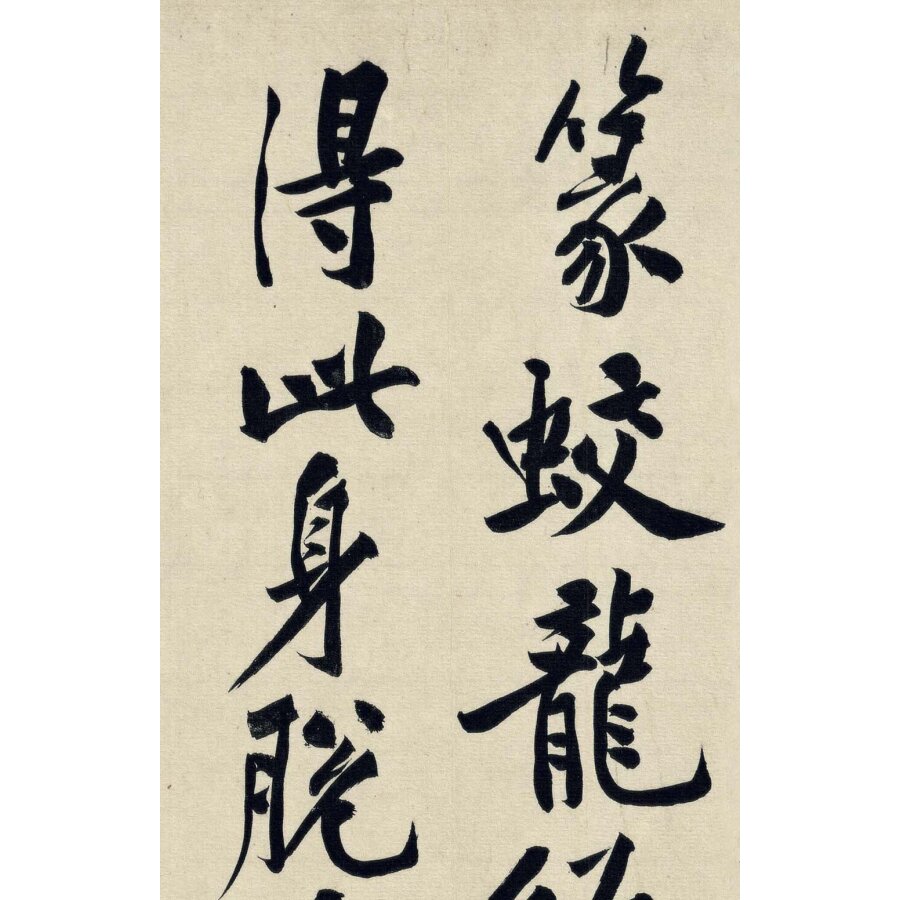 篆蛟龍
得此身脱